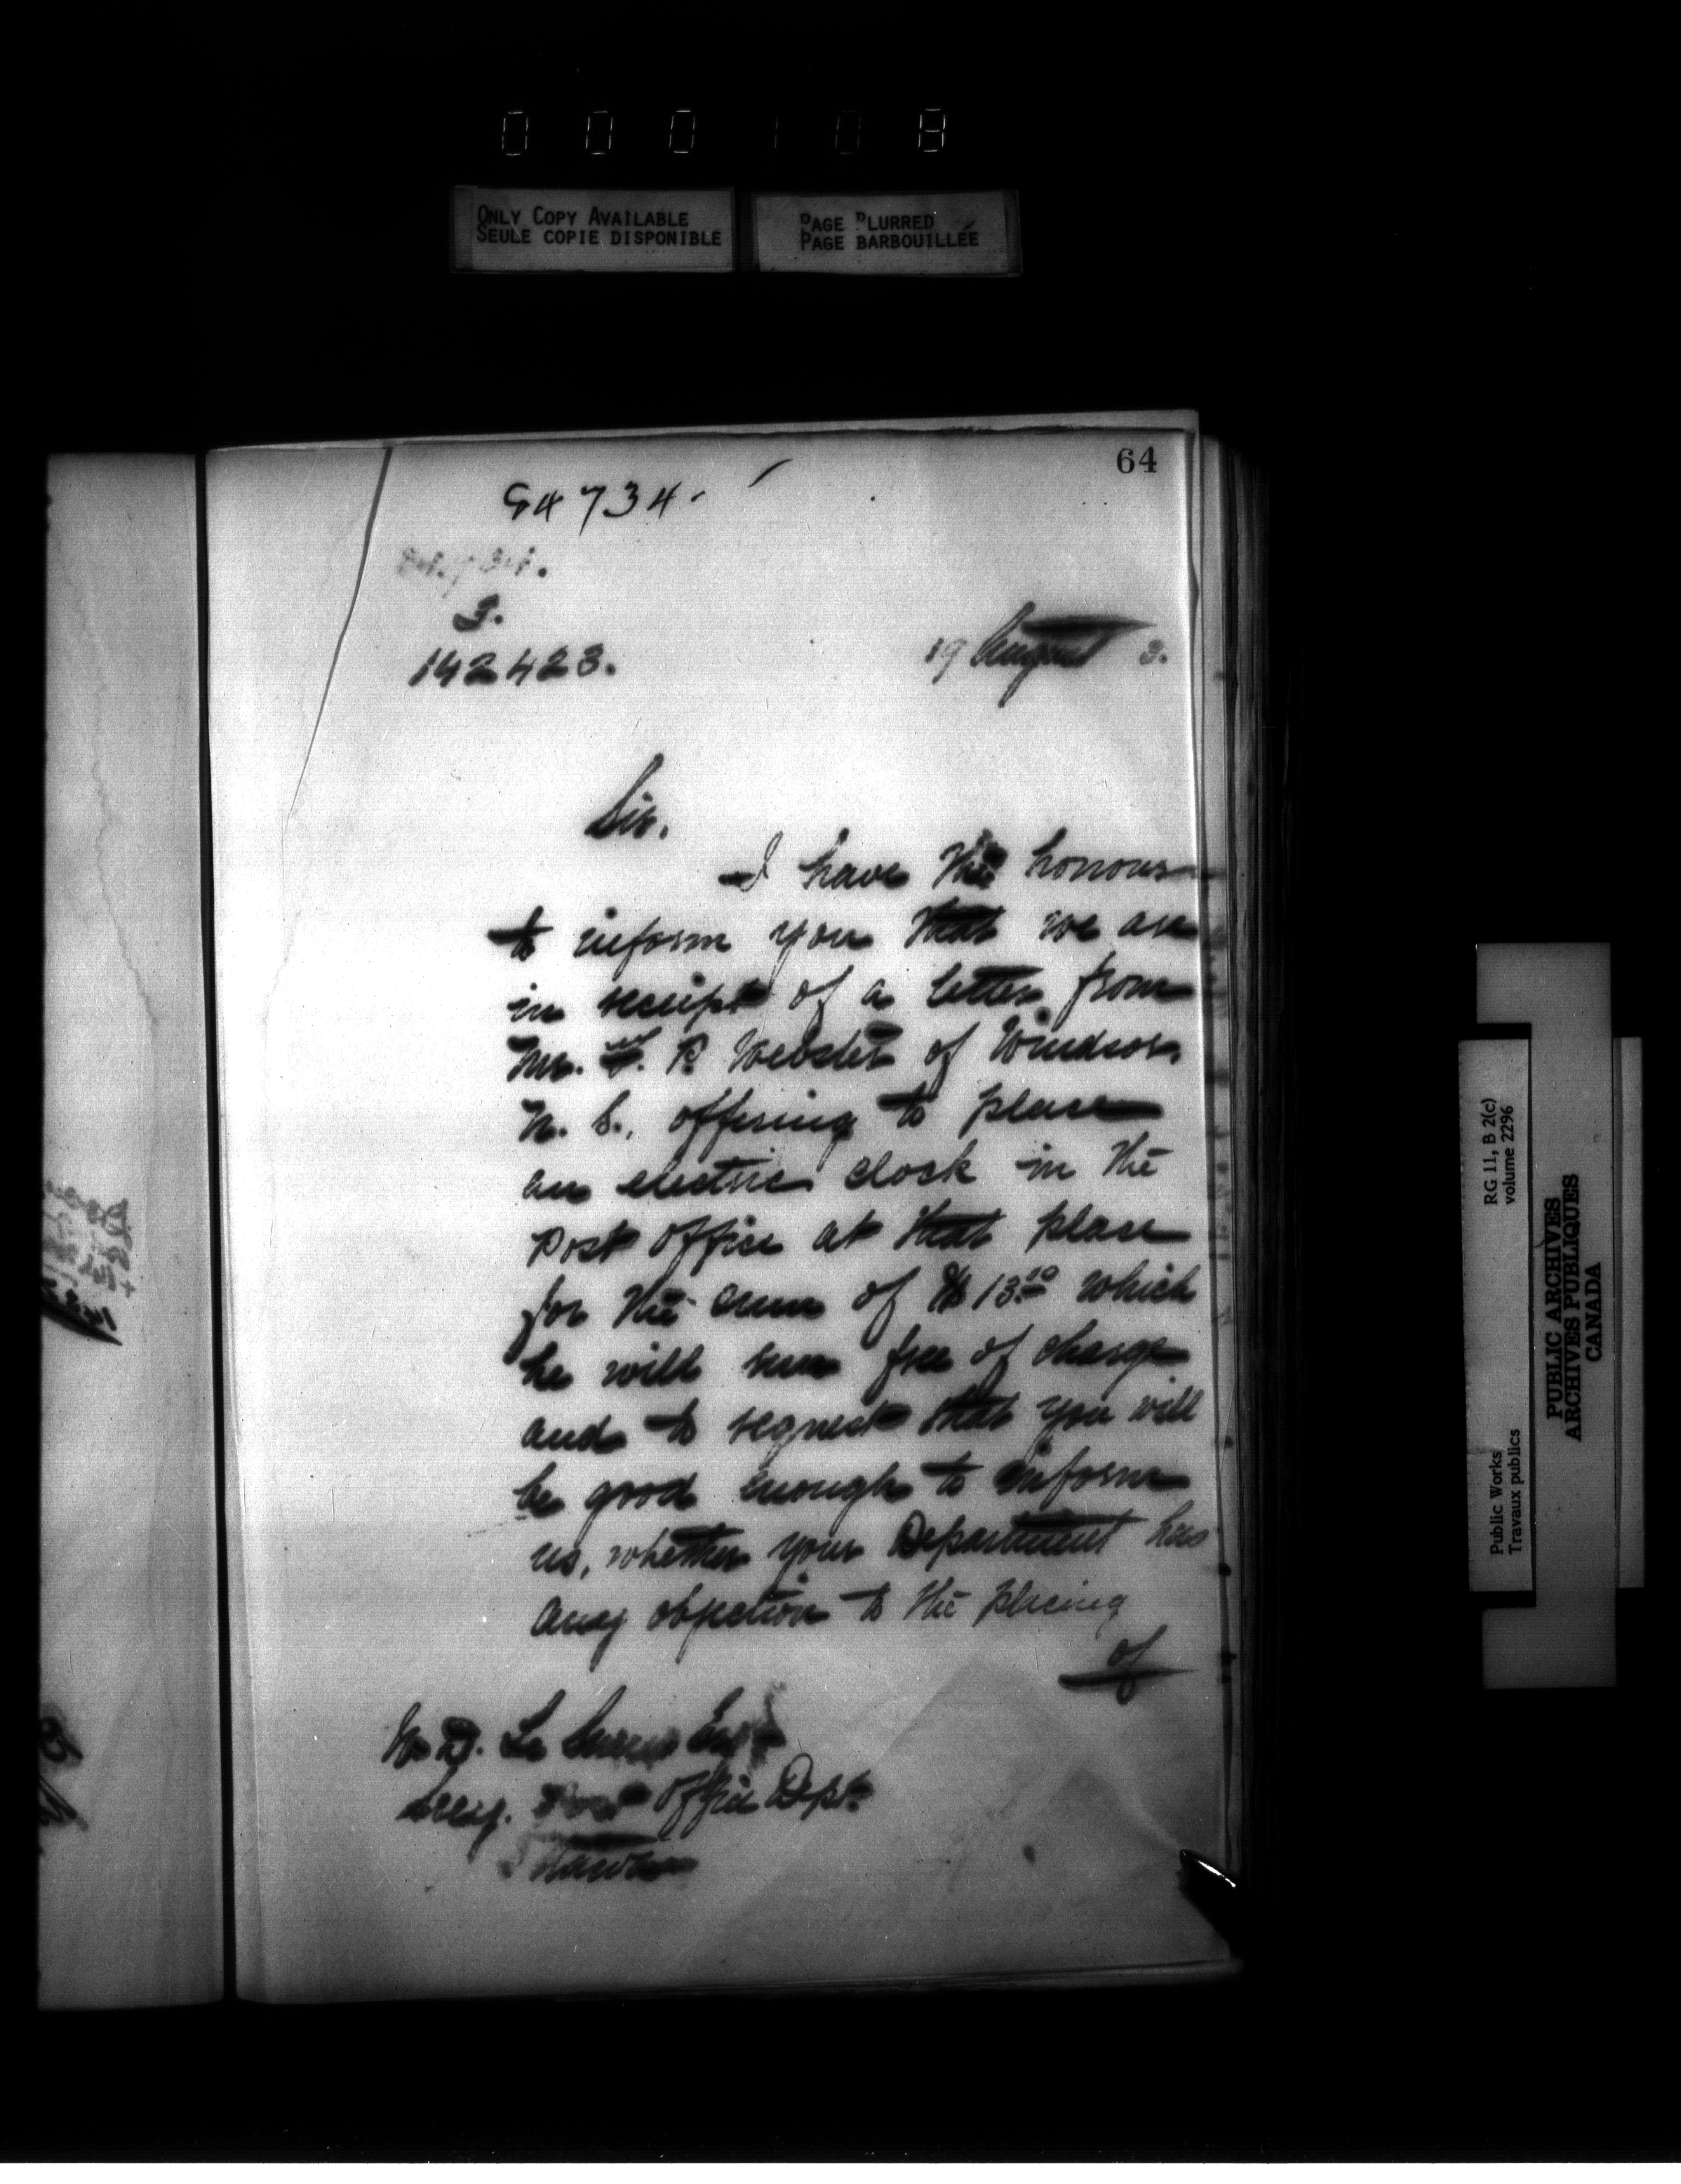 000108
ONLY COPY AVAILABLE
SEULE COPIE DISPONIBLE
PAGE BLURRED
PAGE BARBOUILLÉE
64
94734.
3.
142423.
19 August 3.
Sir.
I have the honour
to inform you that we are
in receipt of a letter from
Mr. P. Webster of Windsor,
N. S., offering to place
an electric clock in the
Post Office at that place
for the sum of $13.00 which
he will run free of charge
and to request that you will
be good enough to inform
us, whether your Department has
any objection to the placing
of
W. D. Le Sueur Esqr
Secy. Post Office Dept.
Ottawa
RG 11, B 2(c)
volume 2296
Public Works
Travaux publics
PUBLIC ARCHIVES
ARCHIVES PUBLIQUES
CANADA